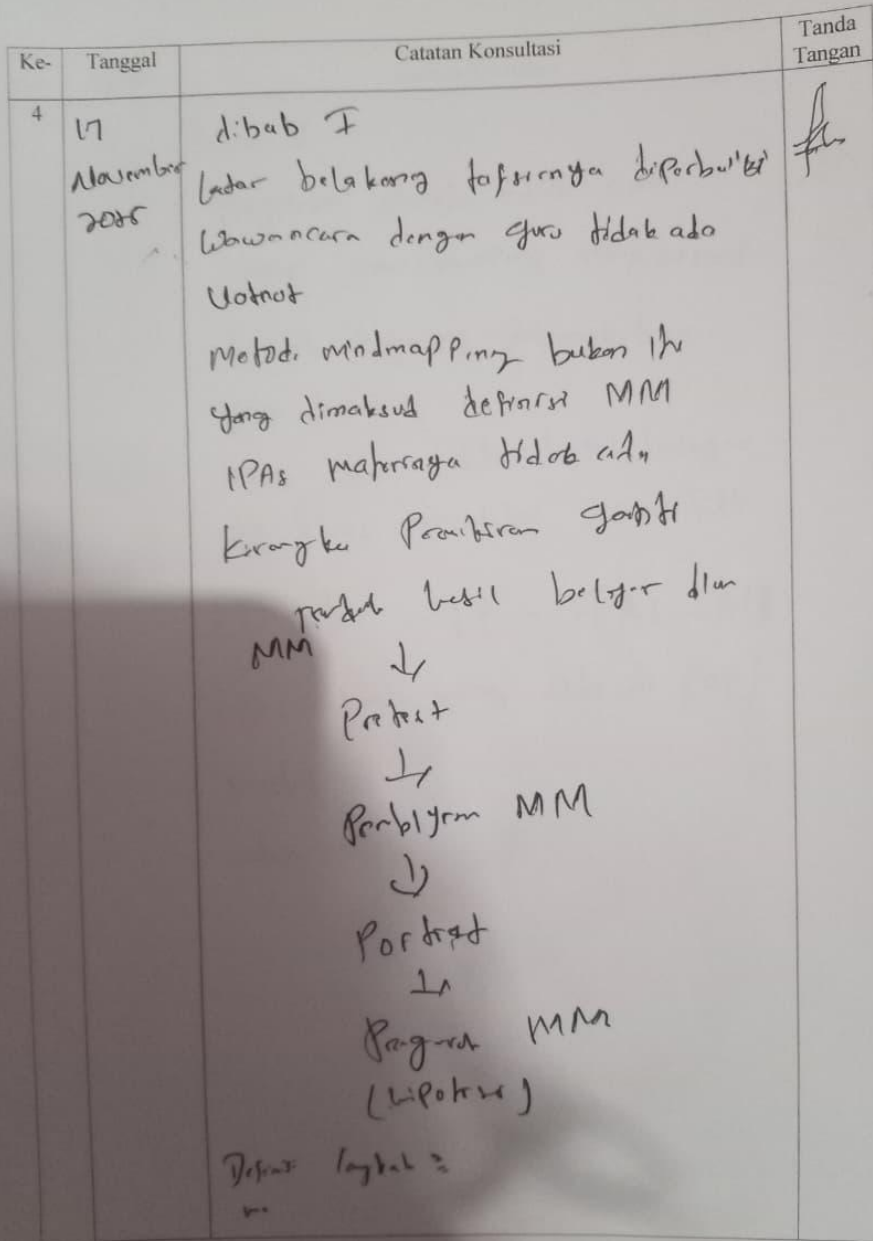 Ke- Tanggal Catatan Konsultasi Tanda Tangan
4 17 November 2025
dibab I
latar belakang tafsirnya diperbaiki
Wawancara dengan guru tidak ada
Metode mindmapping bukan itu
yang dimaksud definisi MM
IPAS materinya tidak ada
Kerangka Pemikiran ganti
hasil belajar dlm
MM
↓
Pretest
↓
MM
↓
Posttest
↓
Pengaruh MM
(hipotesis)
Definisi langkah2